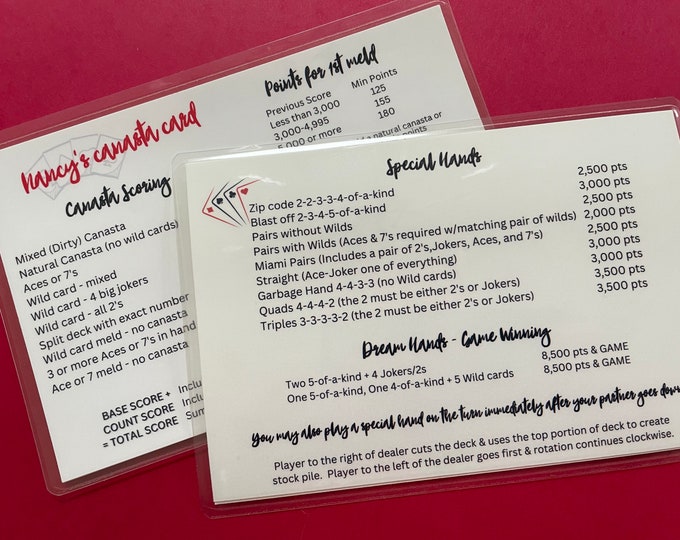 Nancy's canasta card
Canasta Scoring
Mixed (Dirty) Canasta
Natural Canasta (no wild cards)
Aces or 7's
Wild card - mixed
Wild card - 4 big jokers
Wild card - all 2's
Split deck with exact number
Wild card meld - no canasta
3 or more Aces or 7's in hand
Ace or 7 meld - no canasta
BASE SCORE +
COUNT SCORE
= TOTAL SCORE
Points for 1st meld
Previous Score Min Points
Less than 3,000 125
3,000-4,995 155
5,000 or more 180
a natural canasta or
points
Special Hands
Zip code 2-2-3-3-4-of-a-kind 2,500 pts
Blast off 2-3-4-5-of-a-kind 3,000 pts
Pairs without Wilds 2,500 pts
Pairs with Wilds (Aces & 7's required w/matching pair of wilds) 2,000 pts
Miami Pairs (Includes a pair of 2's,Jokers, Aces, and 7's) 2,500 pts
Straight (Ace-Joker one of everything) 3,000 pts
Garbage Hand 4-4-3-3 (no Wild cards) 3,000 pts
Quads 4-4-4-2 (the 2 must be either 2's or Jokers) 3,500 pts
Triples 3-3-3-3-2 (the 2 must be either 2's or Jokers) 3,500 pts
Dream Hands - Game Winning
Two 5-of-a-kind + 4 Jokers/2s 8,500 pts & GAME
One 5-of-a-kind, One 4-of-a-kind + 5 Wild cards 8,500 pts & GAME
You may also play a special hand on the turn immediately after your partner goes down
Player to the right of dealer cuts the deck & uses the top portion of deck to create
stock pile. Player to the left of the dealer goes first & rotation continues clockwise.